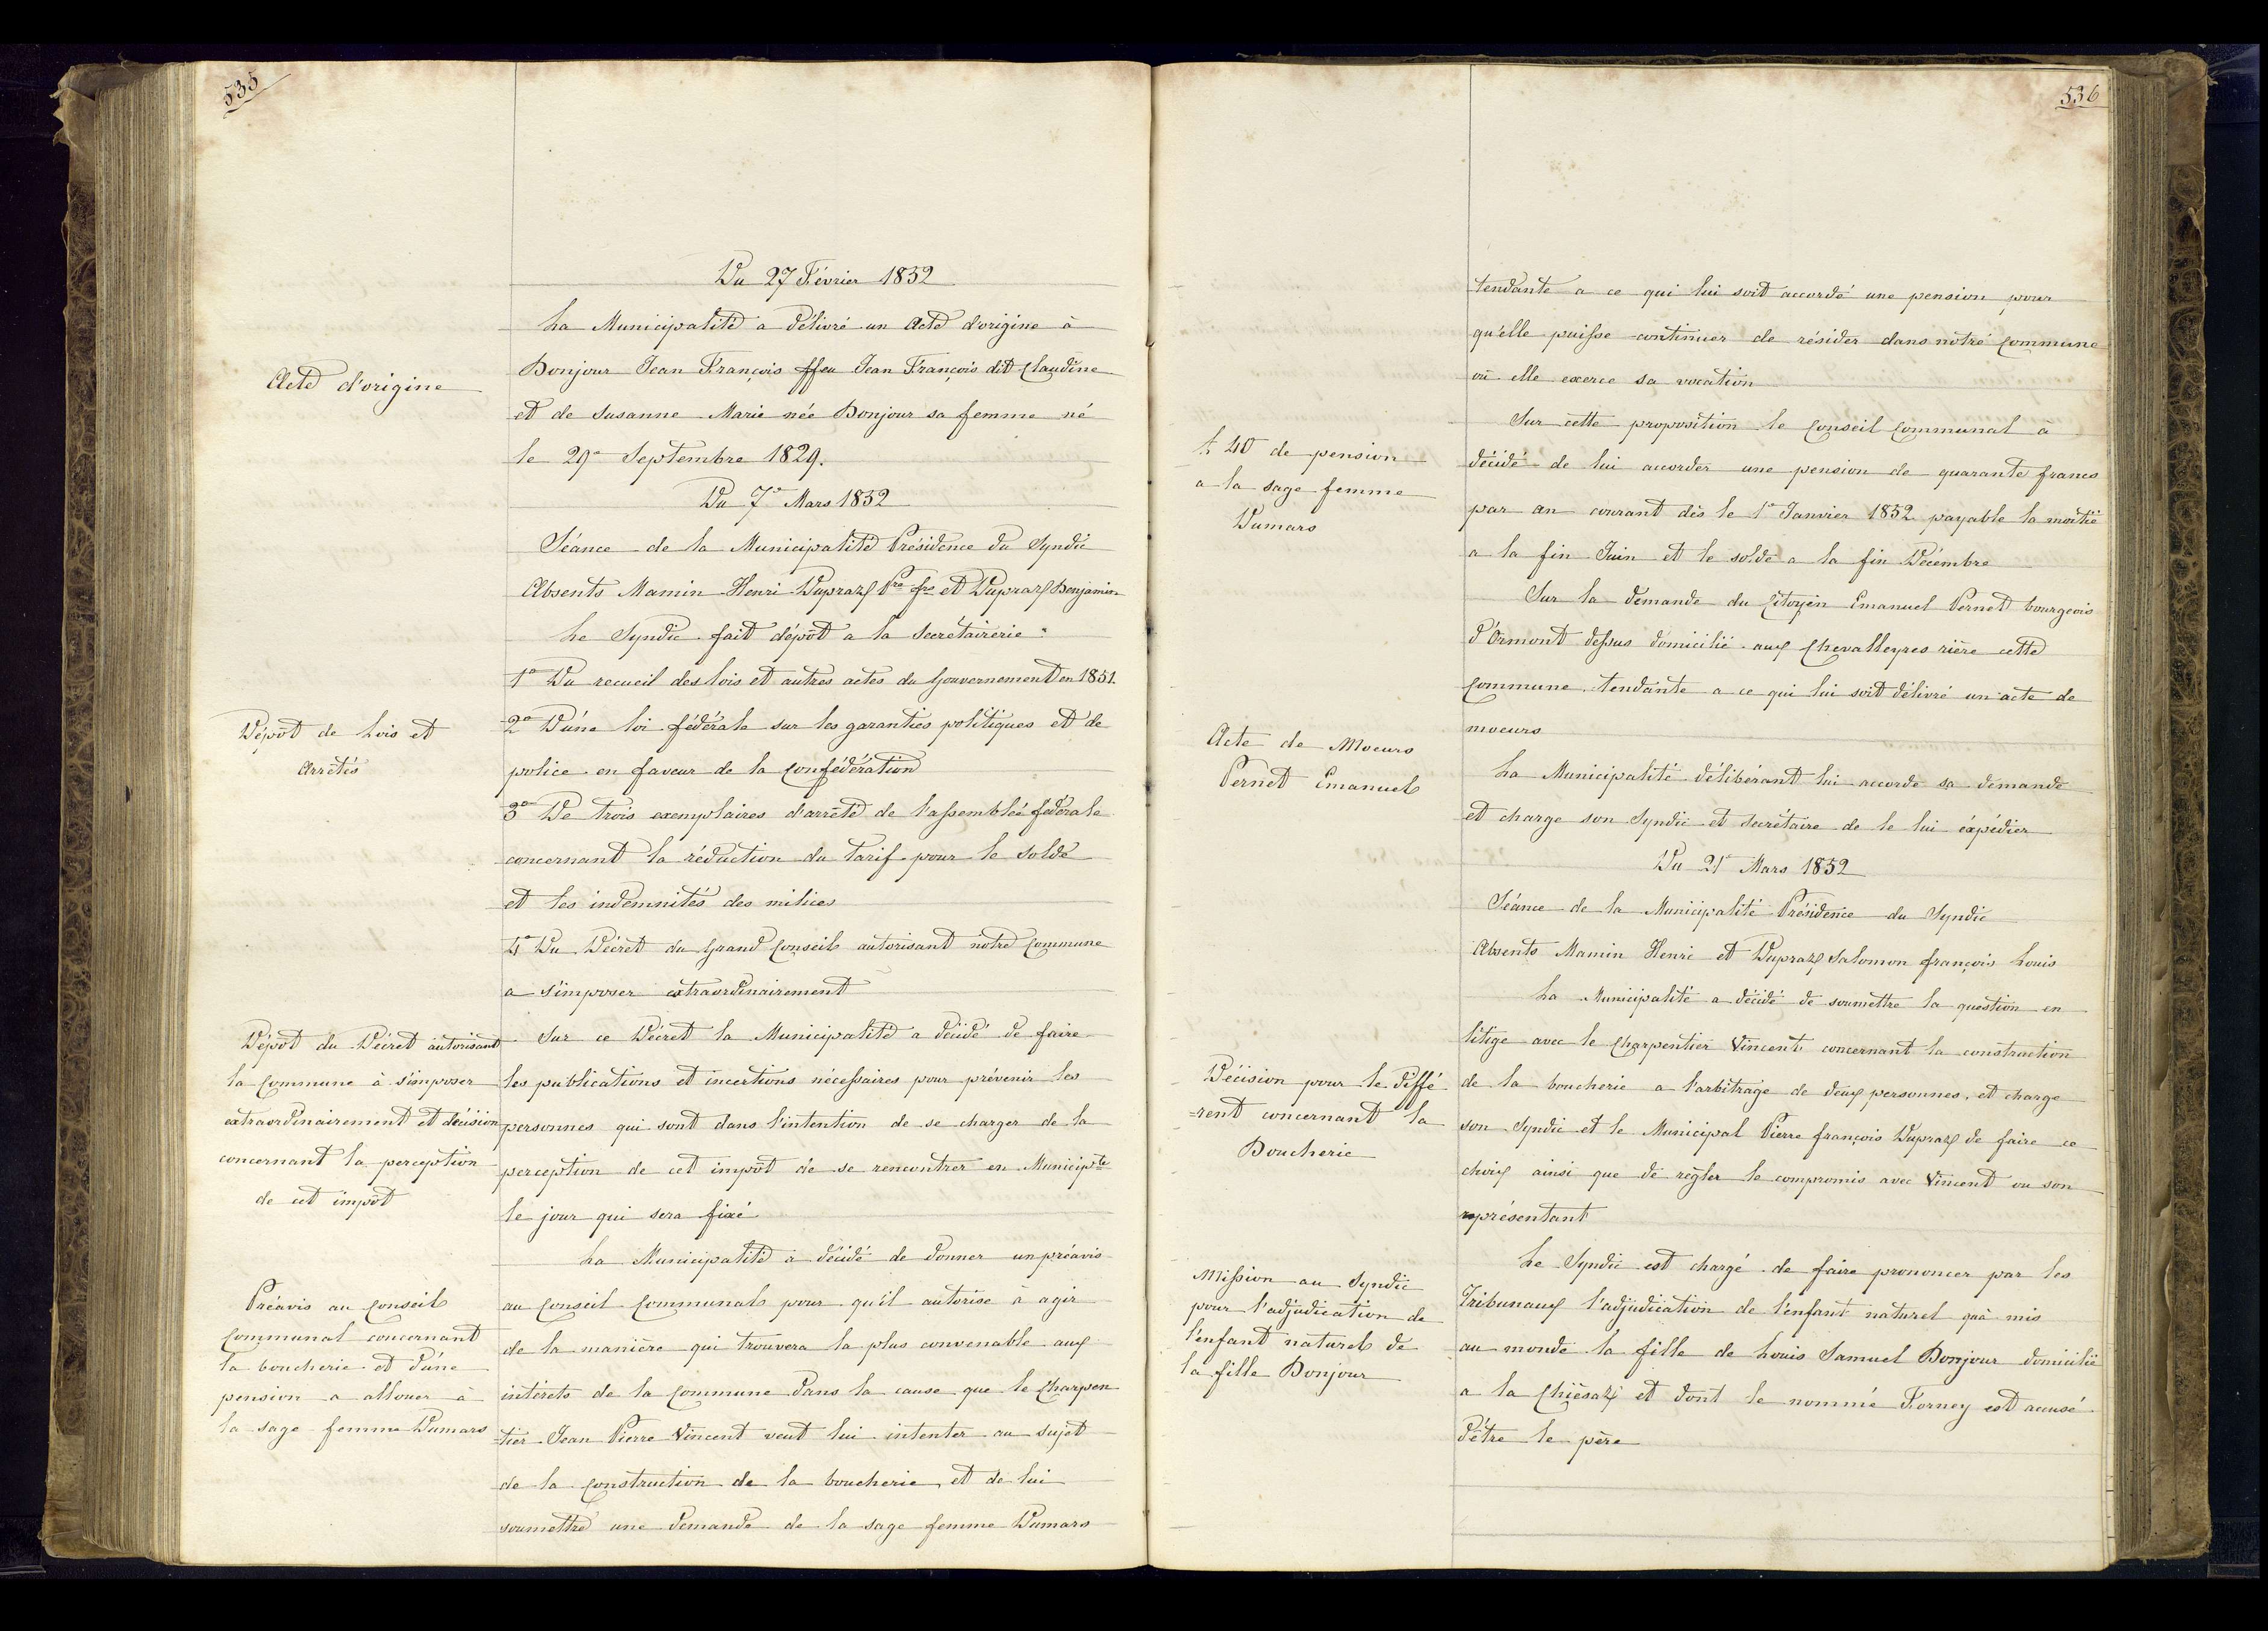 535
Du 27 Février 1852
La Municipalité a délivré un Acte d'origine à
Acte d'origine
Bonjour Jean François ffeu Jean François dit Claudine
et de Susanne Marie née Bonjour sa femme né
le 29e Septembre 1829.
Du 7e Mars 1852
Séance de la Municipalité Présidence du Syndic
Absents Mamin Henri Dupraz Pre fre et Dupraz Benjamin
Le Syndic fait dépôt a la Secrétairerie
1o Du recueil des lois et autres actes du Gouvernement en 1851.
Dépôt de Lois et
Arrêtés
2o D'une loi fédérale sur les garanties politiques et de
police en faveur de la Confédération
3o De trois exemplaires d'arrêté de l'assemblée fédérale
concernant la réduction du Tarif pour le solde
et les indemnités des milices
4o Du Décret du Grand Conseil autorisant notre Commune
a s'imposer extraordinairement
Dépôt du Décret autorisant
la Commune à s'imposer
extraordinairement et décision
concernant la perception
de cet impôt
Sur ce Décret la Municipalité a décidé de faire
les publications et incertions nécessaires pour prévenir les
personnes qui sont dans l'intention de se charger de la
perception de cet impôt de se rencontrer en Municipte
le jour qui sera fixé
La Municipalité à décidé de donner un préavis
Préavis au Conseil
Communal concernant
la boucherie et d'une
pension a allouer à
la sage femme Dumars
au Conseil Communal pour qu'il autorise à agir
de la manière qui trouvera la plus convenable aux
intérets de la Commune dans la cause que le Charpen
=tier Jean Pierre Vincent veut lui intenter au sujet
de la construction de la boucherie, et de lui
soumettre une demande de la sage femme Dumars
536
tendante a ce qui lui soit accordé une pension pour
qu'elle puisse continuer de résider dans notre Commune
où elle exerce sa vocation
f. 40 de pension
a la sage femme
Dumars
Sur cette proposition le Conseil Communal à
décidé de lui accorder une pension de quarante francs
par an courant dès le 1e Janvier 1852 payable la moitié
a la fin Juin et le solde a la fin Décembre
Sur la demande du Citoyen Emanuel Pernet bourgeois
d'Ormont dessus domicilié aux Chevalleyres rière cette
Commune, tendante a ce qui lui soit délivré un acte de
moeurs
Acte de Moeurs
Pernet Emanuel
La Municipalité délibérant lui accorde sa demande
et charge son Syndic et Secrétaire de le lui éxpédier
Du 21e Mars 1852
Séance de la Municipalité Présidence du Syndic
Absents Mamin Henri et Dupraz Salomon françois Louis
La Municipalité a décidé de soumettre la question en
Décision pour le diffé
=rent concernant la
Boucherie
litige avec le Charpentier Vincent concernant la construction
de la boucherie a l'arbitrage de deux personnes, et charge
son Syndic et le Municipal Pierre françois Dupraz de faire ce
choix ainsi que de règler le compromis avec Vincent ou son
représentant
Mission au Syndic
pour l'adjudication de
l'enfant naturel de
la fille Bonjour
Le Syndic est chargé de faire prononcer par les
Tribunaux l'adjudication de l'enfant naturel qu'à mis
au monde la fille de Louis Samuel Bonjour domicilié
a la Chiésaz et dont le nommé Forney est accusé
d'être le père